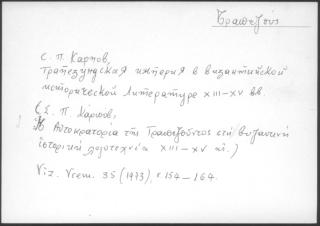 Τραπεζούς
С. П. Карпов,
Трапезундская империя в византийской
исторической литературе XIII-XV вв.
(Σ. Π. Κάρπωφ,
Ἡ Αὐτοκρατορία τῆς Τραπεζοῦντος στή βυζαντινή
ἱστορική λογοτεχνία XIII-XV αἰ.)
Viz. Vrem. 35 (1973), σ. 154-164.